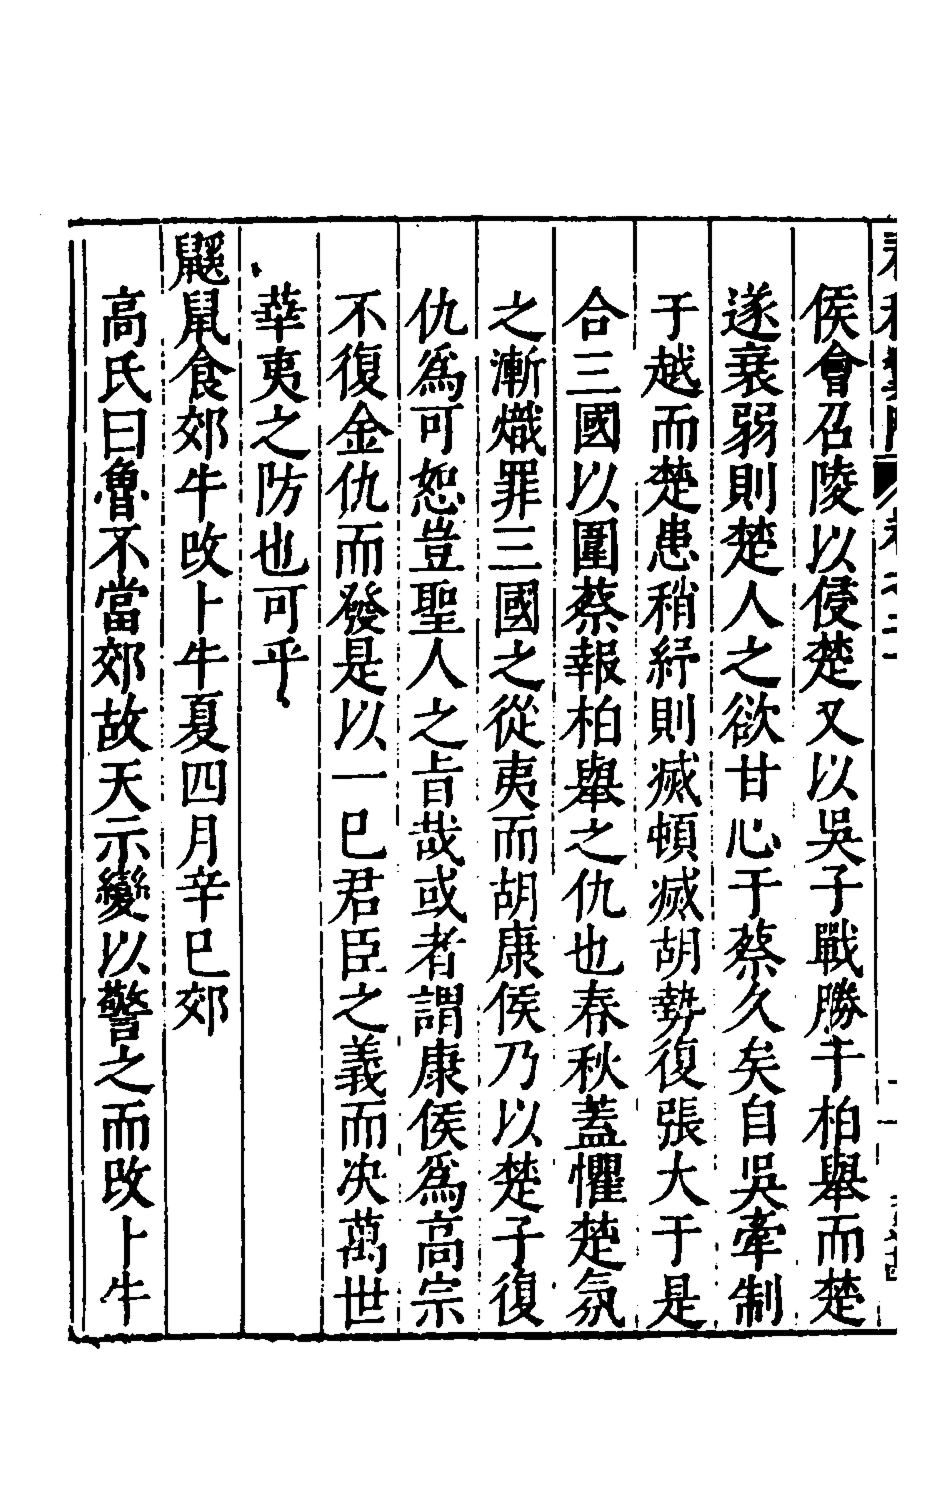 侯會召陵以侵楚又以吳子戰勝于柏舉而楚
遂衰弱則楚人之欲甘心于蔡久矣自吳牽制
于越而楚患稍紓則滅頓滅胡勢復張大于是
合三國以圍蔡報柏舉之仇也春秋蓋懼楚氛
之漸熾罪三國之從夷而胡康侯乃以楚子復
仇爲可恕豈聖人之旨哉或者謂康侯爲高宗
不復金仇而發是以一巳君臣之義而决萬世
華夷之防也可乎
鼷鼠食郊牛改卜牛夏四月辛巳郊
高氏曰魯不當郊故天示變以警之而改卜牛